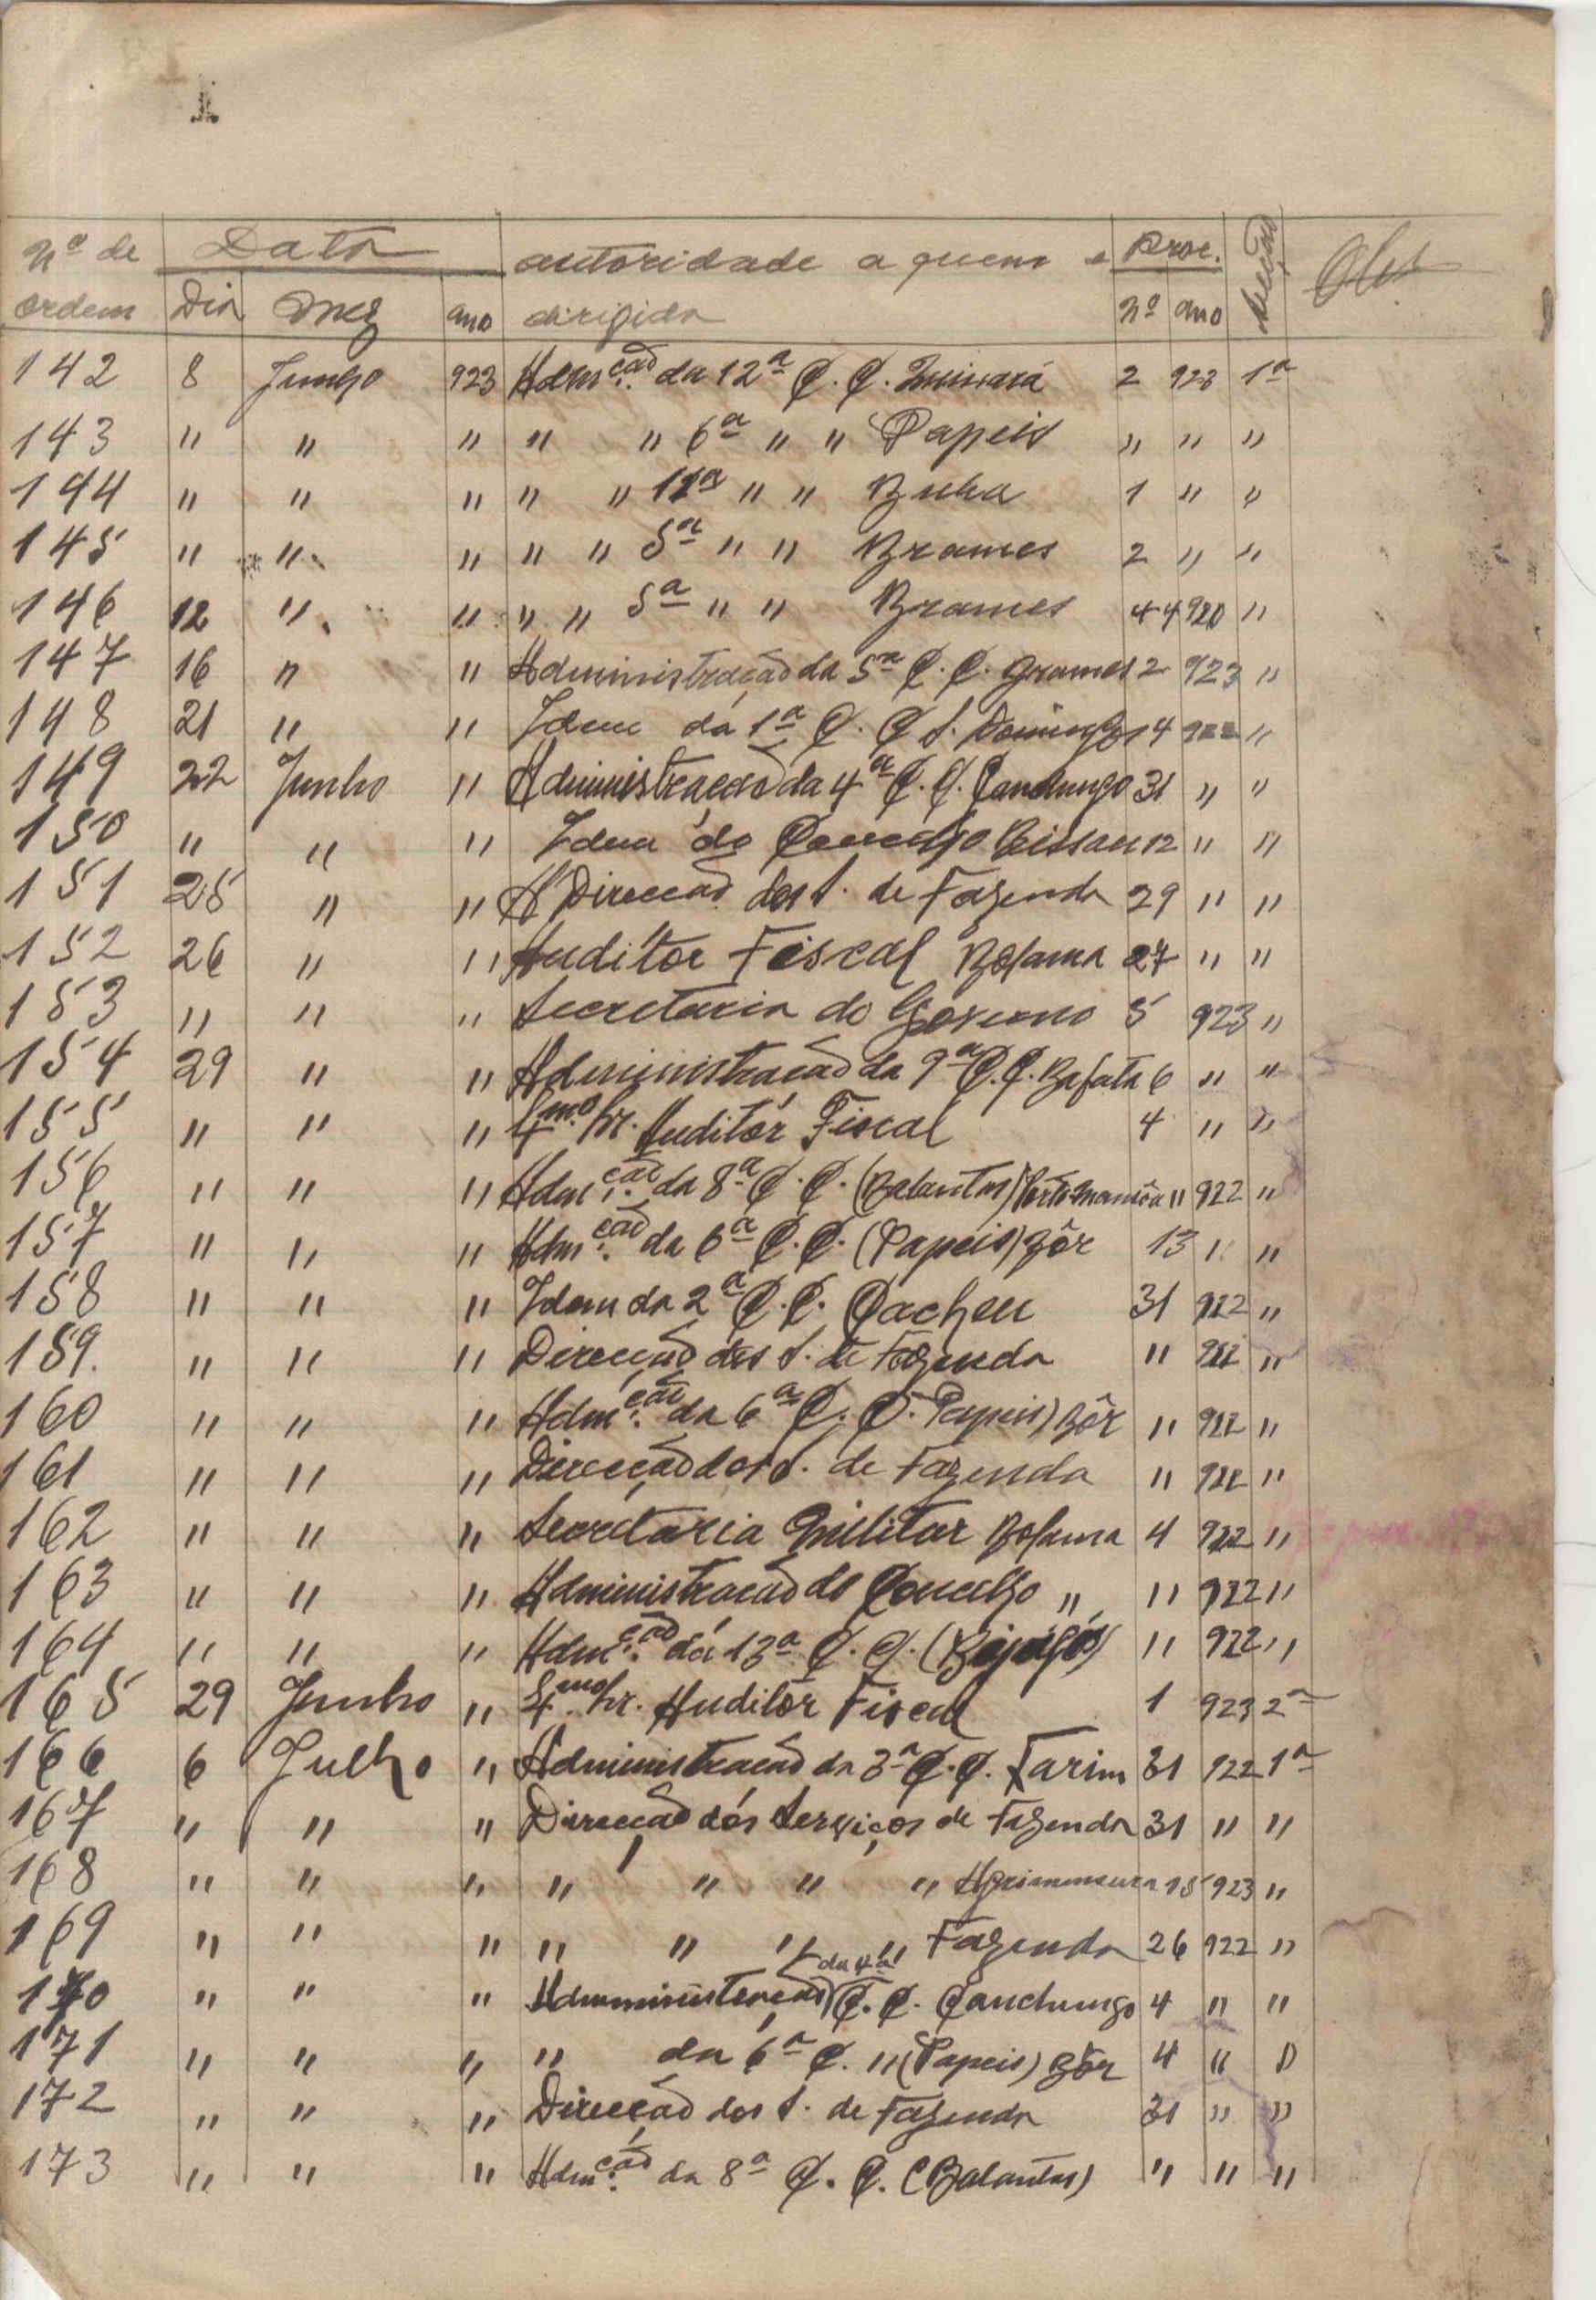 Nº de Data autoridade a quem é Proc. Secção Obs
ordem Dia Mez ano dirigida Nº ano
142 8 Junho 923 Admção. da 12ª C. C. 2 923 1ª
143 " " " " " 6ª " " Papeis " " "
144 " " " " " 11ª " " Buba 1 " "
145 " " " " " 5ª " " Brames 2 " "
146 12 " " " " 5ª " " Brames 44 920 "
147 16 " " Administração da 5ª C. C. Brames 2 923 "
148 21 " " Idem da 1ª C. C. S. Domingos 4 922 "
149 22 Junho " Administração da 4ª C. C. Canchungo 31 " "
150 " " " Idem do Concelho Bissau 12 " "
151 25 " " A Direcção dos S. de Fazenda 29 " "
152 26 " " Auditor Fiscal Bolama 27 " "
153 " " " Secretaria do Governo 5 923 "
154 29 " " Administração da 9ª C. C. Bafatá 6 " "
155 " " " Exmo. Sr. Auditor Fiscal 4 " "
156 " " " Admção. da 8ª C. C. (Balantas) Porto Mansôa " 922 "
157 " " " Admção. da 6ª C. C. (Papeis) Bôr 13 " "
158 " " " Idem da 2ª C. C. Cacheu 31 922 "
159. " " " Direcção dos S. de Fazenda " 922 "
160 " " " Admção. da 6ª C. C. Papeis) Bôr " 922 "
161 " " " Direcção dos S. de Fazenda " 922 "
162 " " " Secretaria Militar Bolama 4 922 "
163 " " " Administração do Concelho " " 922 "
164 " " " Admção. da 13ª C. C. (Bijagós) " 922 "
165 29 Junho " Exmo. Sr. Auditor Fiscal 1 923 2ª
166 6 Julho " Administração da 3ª C. C. Farim 31 922 1ª
167 " " " Direcção dos Serviços de Fazenda 31 " "
168 " " " " " " " Agrimensura 15 923 "
169 " " " " " " " Fazenda 26 922 "
170 " " " Administração da 4ª C. C. Canchungo 4 " "
171 " " " " da 6ª C. " (Papeis) Bôr 4 " "
172 " " " Direcção dos S. de Fazenda 31 " "
173 " " " Admção. da 8ª C. C. (Balantas) " " "